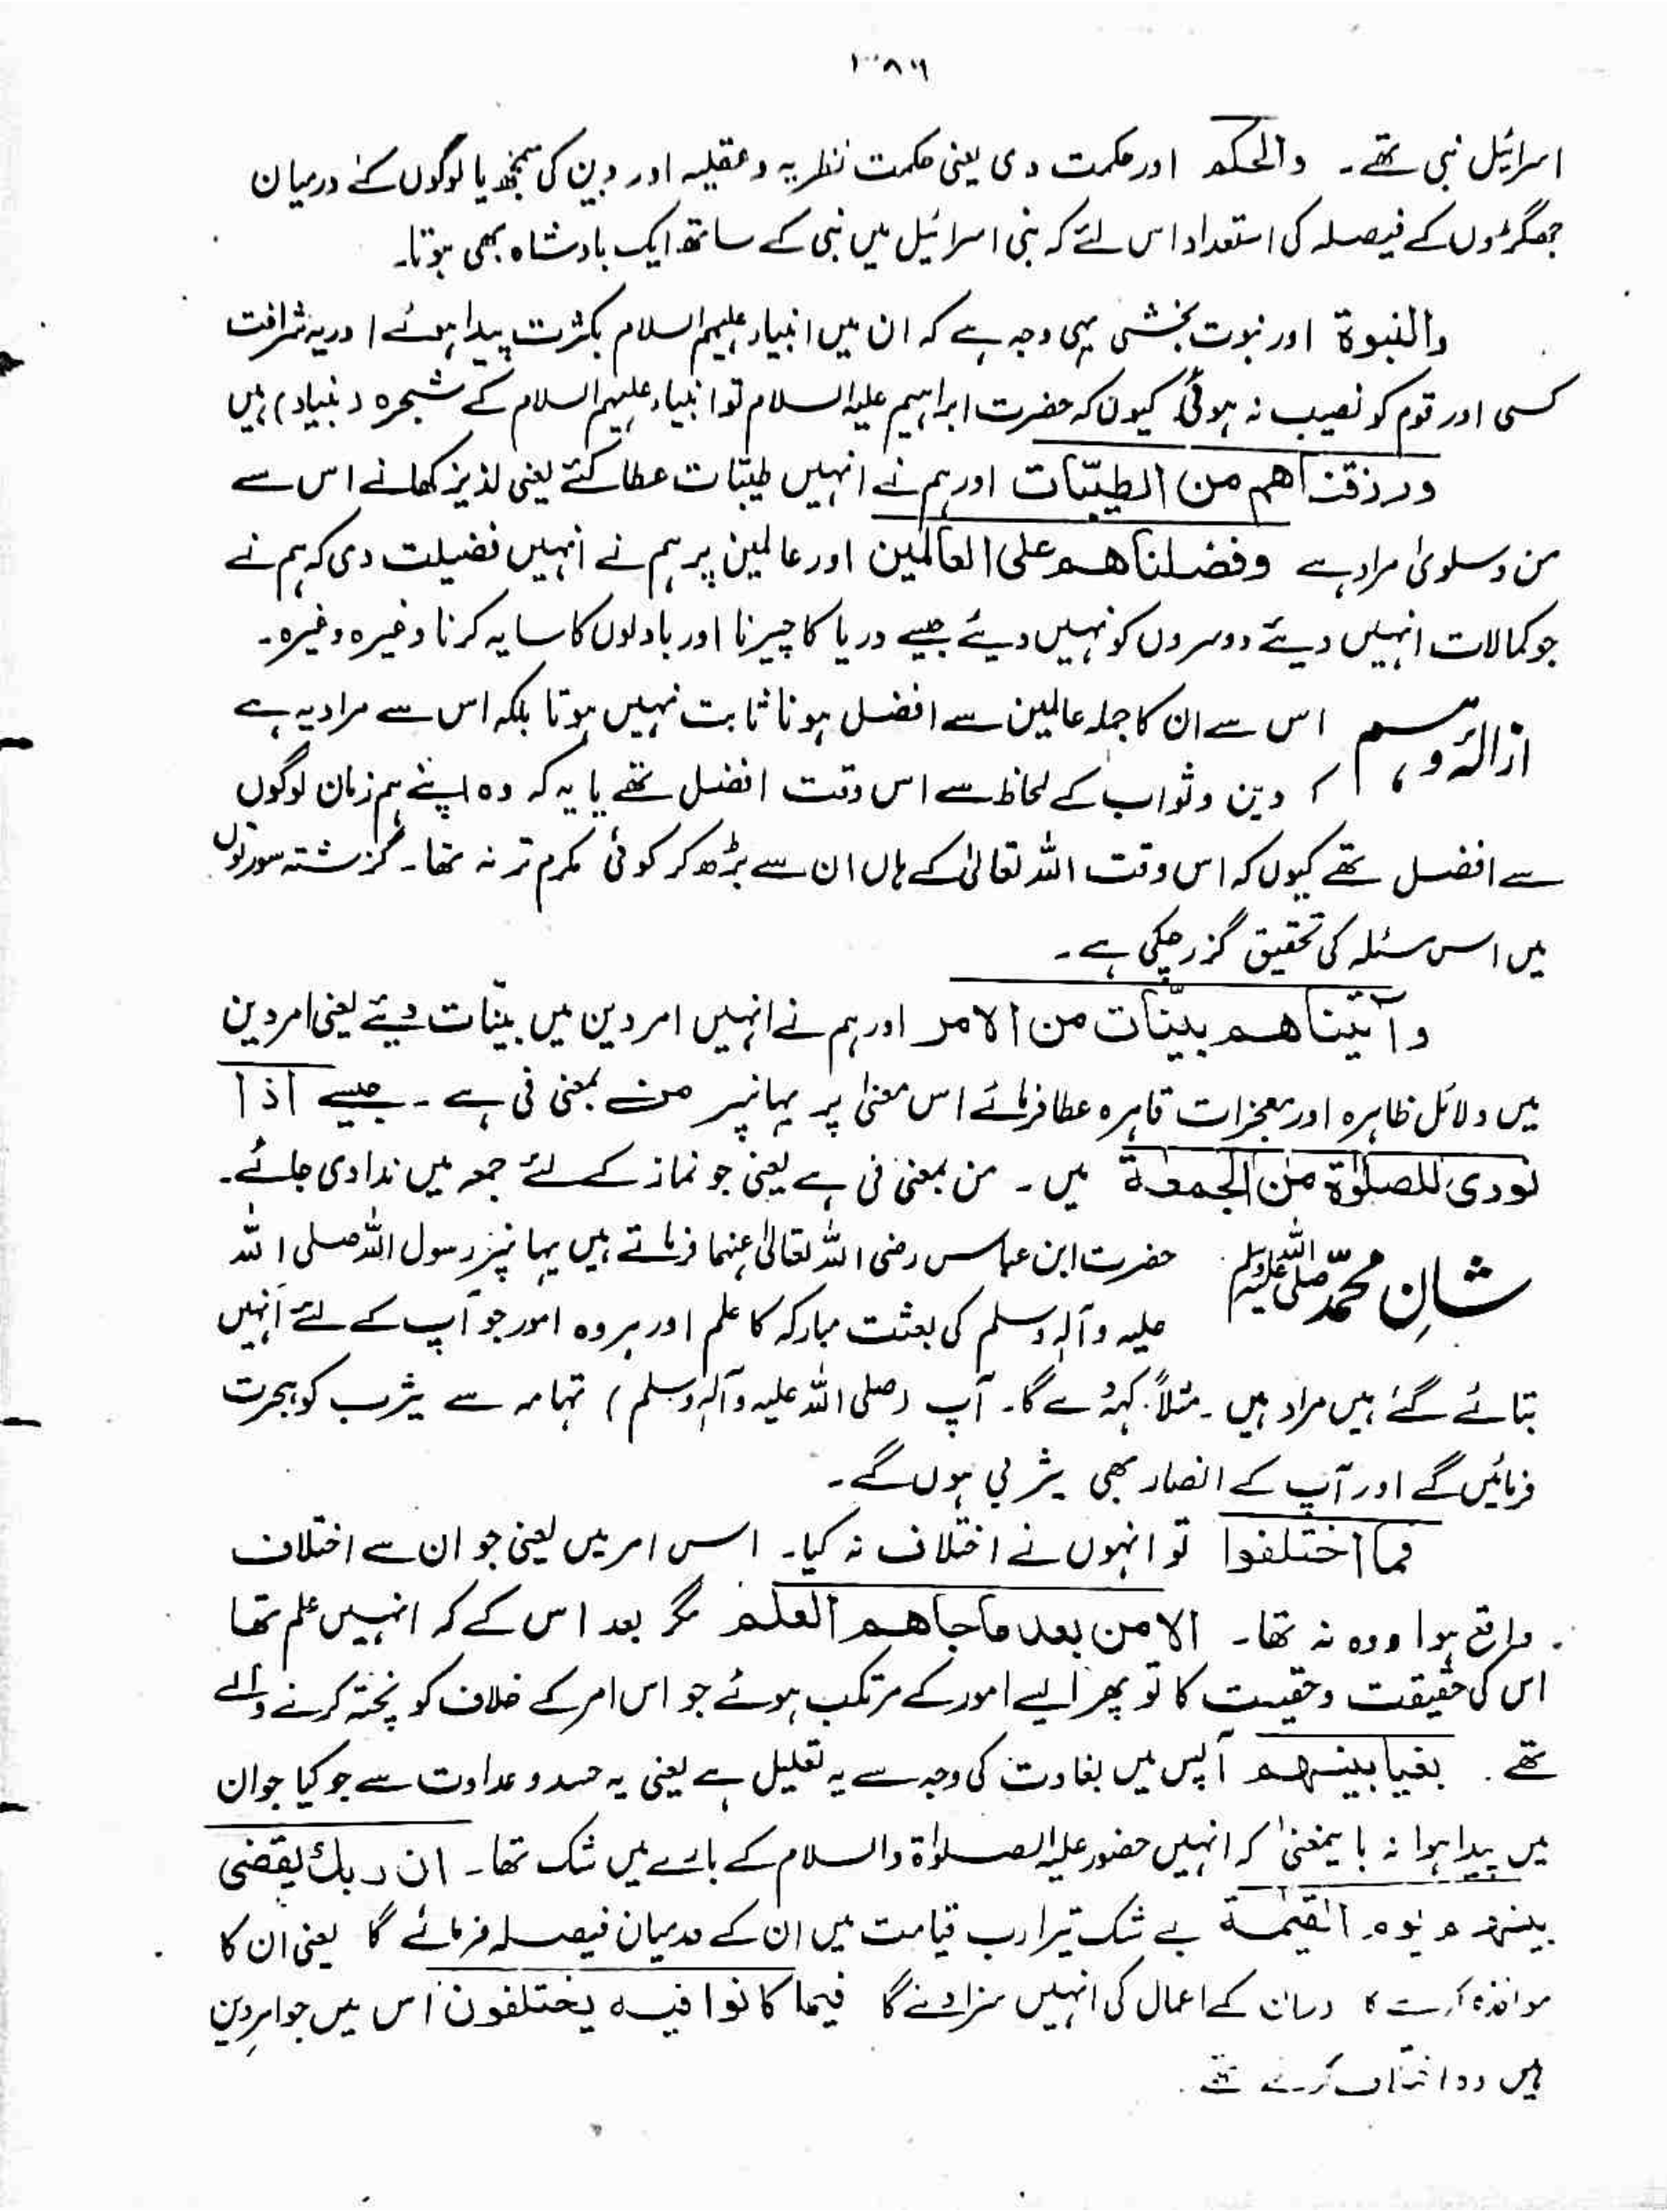 اسرائیل نبی تھے۔ والحکم اور حکمت دی یعنی حکمت نظریہ و عقلیہ اور دین کی سمجھ یا لوگوں کے درمیان
جھگڑوں کے فیصلہ کی استعداد اس لئے کہ بنی اسرائیل میں نبی کے ساتھ ایک بادشاہ بھی ہوتا۔
والنبوۃ اور نبوت بخشی یہی وجہ ہے کہ ان میں انبیاء علیہم السلام بکثرت پیدا ہوئے اور یہ شرافت
کسی اور قوم کو نصیب نہ ہوئی کیوں کہ حضرت ابراہیم علیہ السلام تو انبیاء علیہم السلام کے شجرہ (بنیاد) ہیں
ورزقناھم من الطیبّات اور ہم نے انہیں طیبّات عطا کئے یعنی لذیز کھانے اس سے
من و سلویٰ مراد ہے وفضلناھم علی العالمین اور عالمین پر ہم نے انہیں فضیلت دی کہ ہم نے
جو کمالات انہیں دیئے دوسروں کو نہیں دیئے جیسے دریا کا چیرنا اور بادلوں کا سایہ کرنا وغیرہ وغیرہ۔
ازالۂ وہم اس سے ان کا جملہ عالمین سے افضل ہونا ثابت نہیں ہوتا بلکہ اس سے مراد یہ ہے
کہ دین و ثواب کے لحاظ سے اس وقت افضل تھے یا یہ کہ وہ اپنے ہم زمان لوگوں
سے افضل تھے کیوں کہ اس وقت اللہ تعالیٰ کے ہاں ان سے بڑھ کر کوئی مکرم تر نہ تھا۔ گزشتہ سورتوں
میں اس مسئلہ کی تحقیق گزر چکی ہے۔
وآتیناھم بینّات من الامر اور ہم نے انہیں امر دین میں بینّات دیئے یعنی امر دین
میں دلائل ظاہرہ اور معجزات قاہرہ عطا فرمائے اس معنیٰ پر یہانپر من بمعنی فی ہے۔ جیسے اذا
نودی للصلوٰۃ من الجمعۃ میں۔ من بمعنی فی ہے یعنی جو نماز کے لئے جمعہ میں ندا دی جائے۔
شانِ محمّد صلی اللہ علیہ وسلم حضرت ابن عباس رضی اللہ تعالیٰ عنہما فرماتے ہیں یہانپر رسول اللہ صلی اللہ
علیہ وآلہٖ وسلم کی بعثت مبارکہ کا علم اور ہر وہ امور جو آپ کے لئے انہیں
بتائے گئے ہیں مراد ہیں۔ مثلاً کہ آپ (صلی اللہ علیہ وآلہٖ وسلم) تہامہ سے یثرب کو ہجرت
فرمائیں گے اور آپ کے انصار بھی یثربی ہوں گے۔
فما اختلفوا تو انہوں نے اختلاف نہ کیا۔ اس امر میں یعنی جو ان سے اختلاف
واقع ہوا ووہ نہ تھا۔ الا من بعد ما جاھم العلم مگر بعد اس کے کہ انہیں علم تھا
اس کی حقیقت وحقیت کا تو پھر ایسے امور کے مرتکب ہوئے جو اس امر کے خلاف کو پختہ کرنے والے
تھے۔ بغیا بینہم آپس میں بغاوت کی وجہ سے یہ تعلیل ہے یعنی یہ حسد و عداوت سے جو کیا جو ان
میں پیدا ہوا نہ بایمعنیٰ کہ انہیں حضور علیہ الصلوٰۃ والسلام کے بارے میں شک تھا۔ ان ربك یقضی
بینہم یوم القیٰمۃ بے شک تیرا رب قیامت میں ان کے درمیان فیصلہ فرمائے گا یعنی ان کا
مواخذہ کے اعمال کی انہیں سزا دے گا فیما کانوا فیہ یختلفون اس میں جو امر دین
میں وہ اختلاف کرتے تھے۔